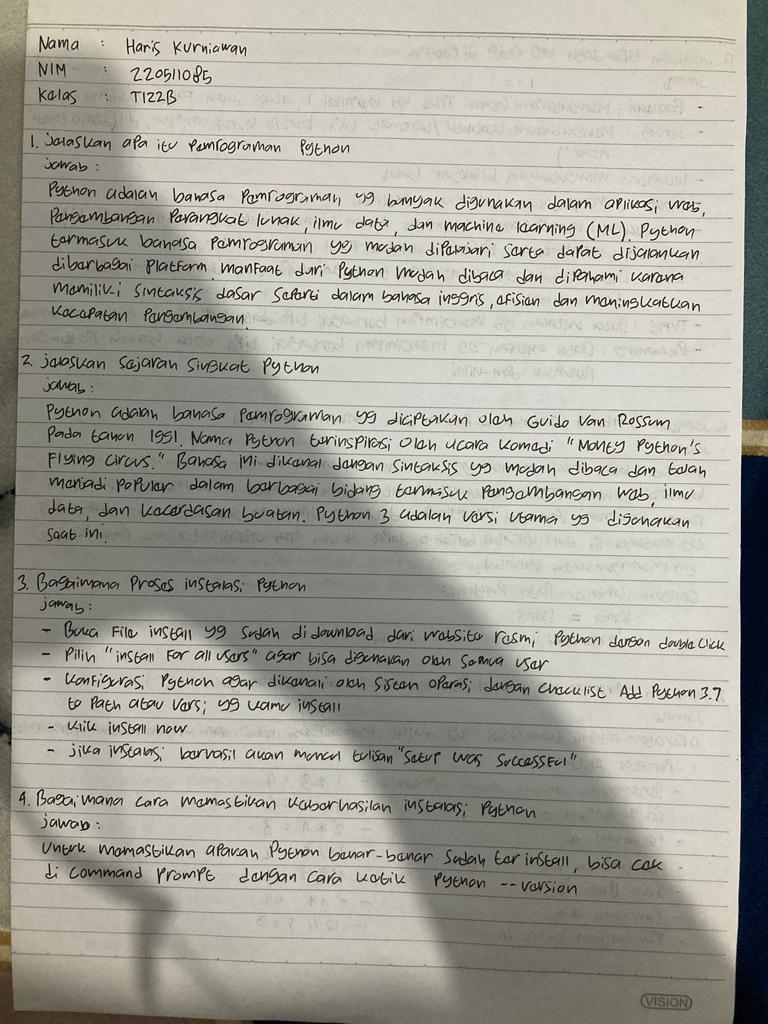 Nama : Haris Kurniawan
NIM : 220511085
Kelas : TI22B
1. Jelaskan apa itu Pemrograman Python
jawab :
Python adalah bahasa Pemrograman yg banyak digunakan dalam aplikasi web,
Pengembangan Perangkat lunak, ilmu data, dan machine learning (ML). Python
termasuk bahasa Pemrograman yg mudah dipelajari serta dapat dijalankan
diberbagai Platform. manfaat dari Python mudah dibaca dan dipahami karena
memiliki sintaksis dasar seperti dalam bahasa inggris, efisien dan meningkatkan
kecepatan Pengembangan.
2. jelaskan Sejarah Singkat Python
jawab :
Python adalah bahasa Pemrograman yg diciptakan oleh Guido Van Rossum
Pada tahun 1991. Nama Python terinspirasi oleh acara komedi "Monty Python's
Flying Circus." Bahasa ini dikenal dengan sintaksis yg mudah dibaca dan telah
menjadi Populer dalam berbagai bidang termasuk Pengembangan web, ilmu
data, dan kecerdasan buatan. Python 3 adalah versi utama yg digunakan
saat ini.
3. Bagaimana Proses instalasi Python
jawab :
- Buka File install yg sudah di download dari website resmi Python dengan double click
- Pilih "install For all users" agar bisa digunakan oleh semua user
- konfigurasi Python agar dikenali oleh sistem operasi dengan checklist Add Python 3.7
to Path atau versi yg kamu install
- klik install now
- jika instalasi berhasil akan muncul tulisan "Setup was Successful"
4. Bagaimana cara memastikan keberhasilan instalasi Python
jawab :
Untuk memastikan apakah Python benar-benar sudah ter install, bisa cek
di command prompt dengan cara ketik Python --version
VISION